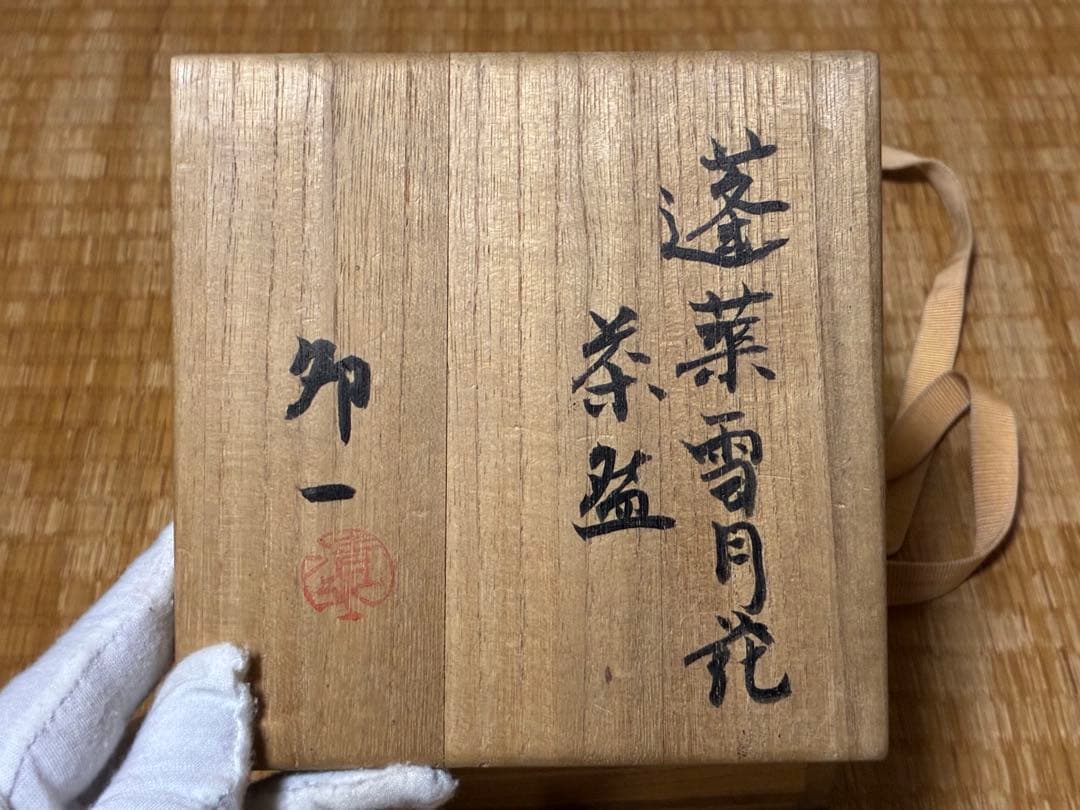 蓬莱雪月花
茶盌
卯一